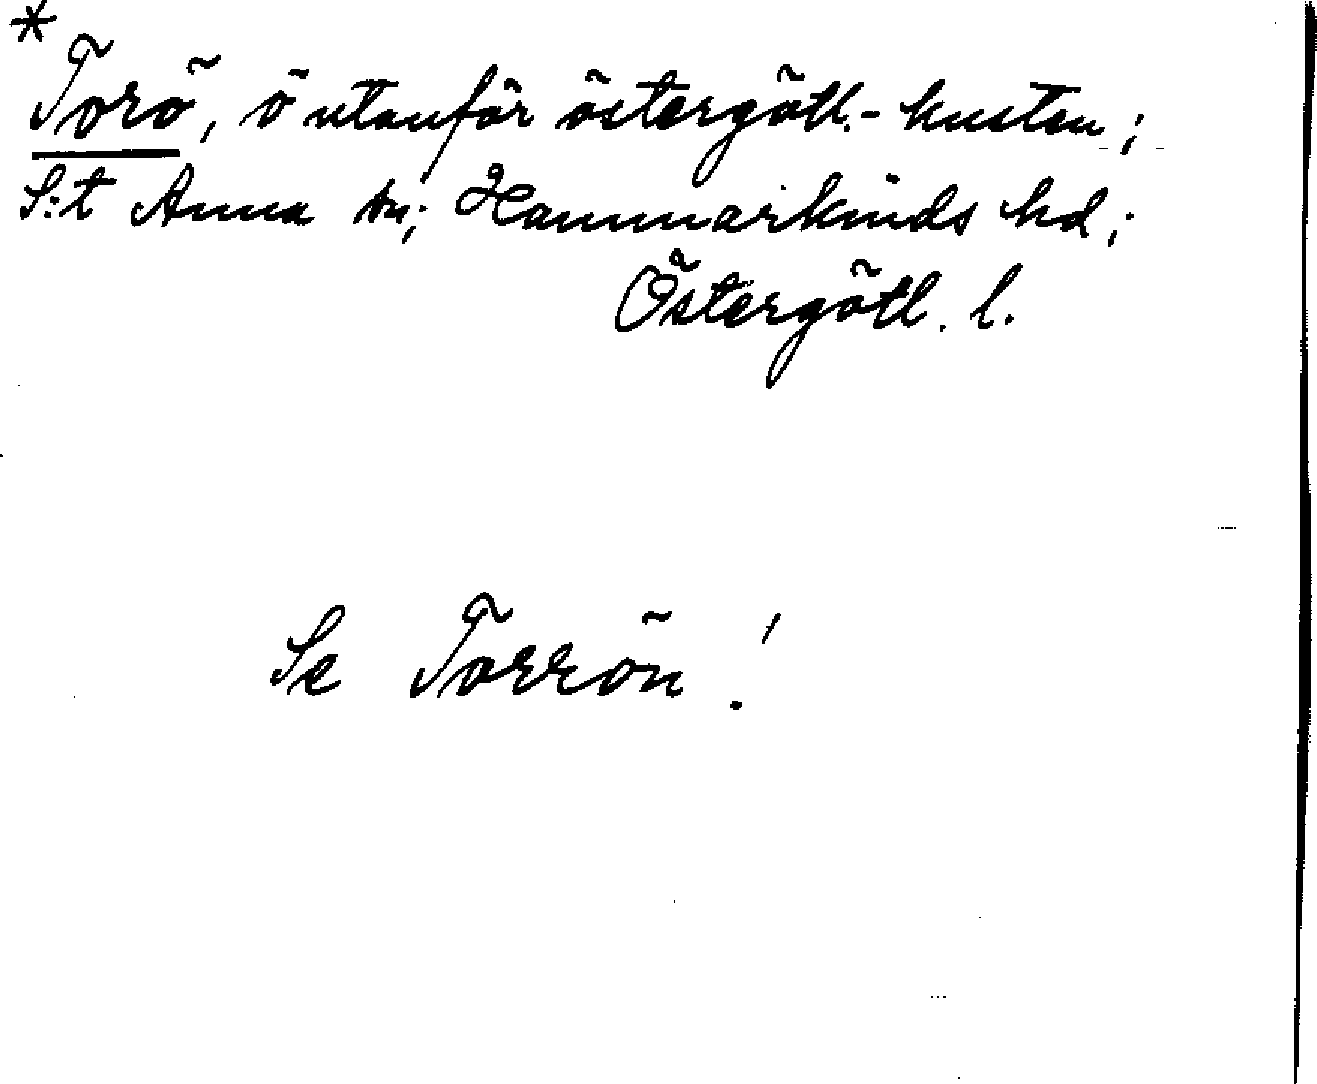 *
Torö, ö utanför östergötl.-kusten;
S:t Anna sn; Hammarkinds hd;
Östergötl. l.
Se Torrön!